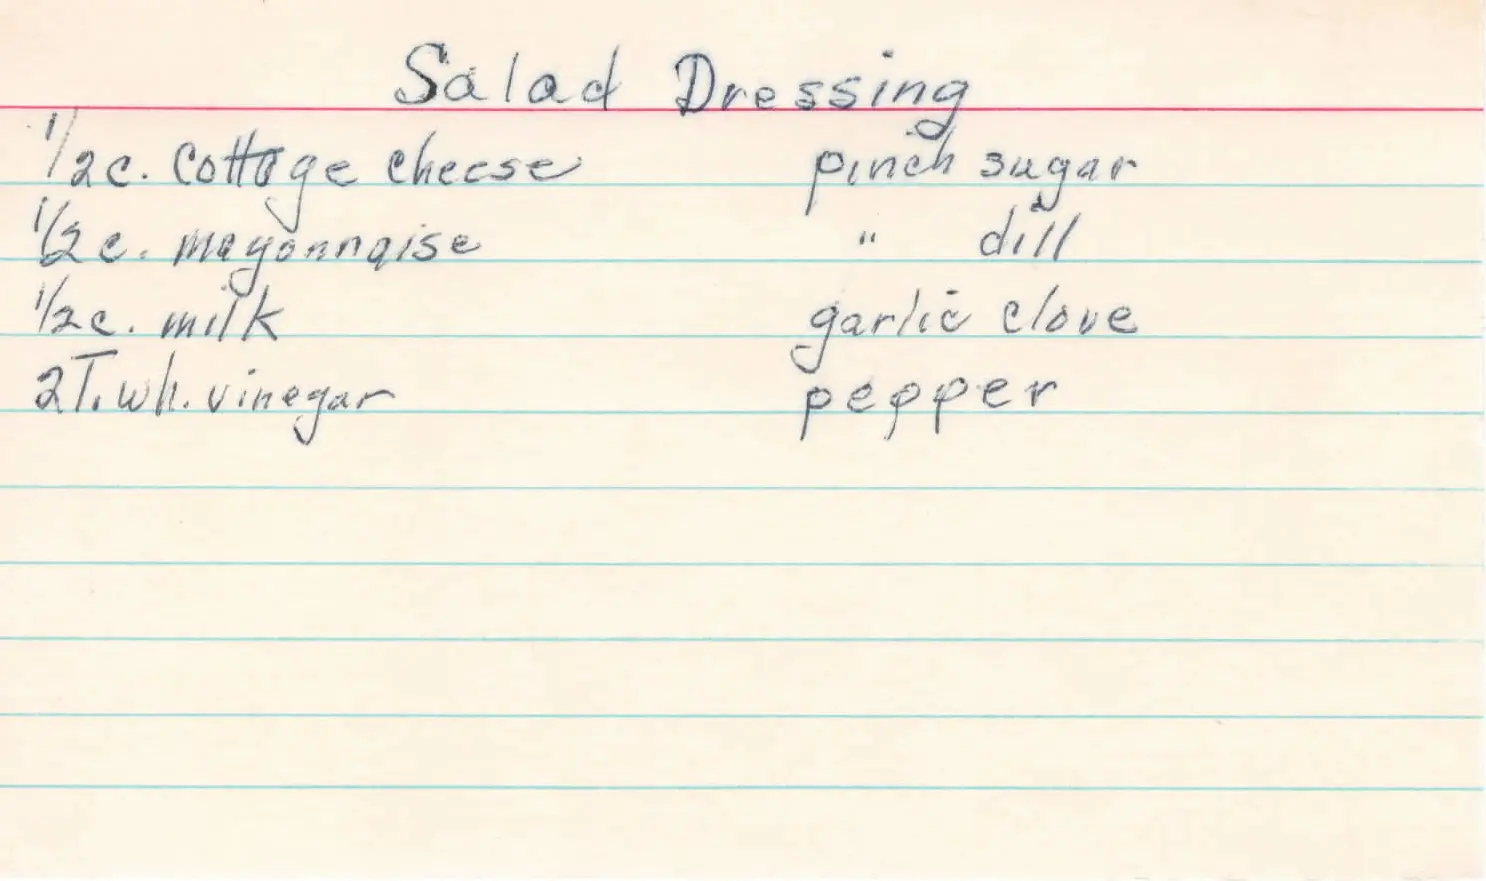 Salad Dressing
1/2 c. cottage cheese
1/2 c. mayonnaise
1/2 c. milk
2T. wh. vinegar
pinch sugar
" dill
garlic clove
pepper